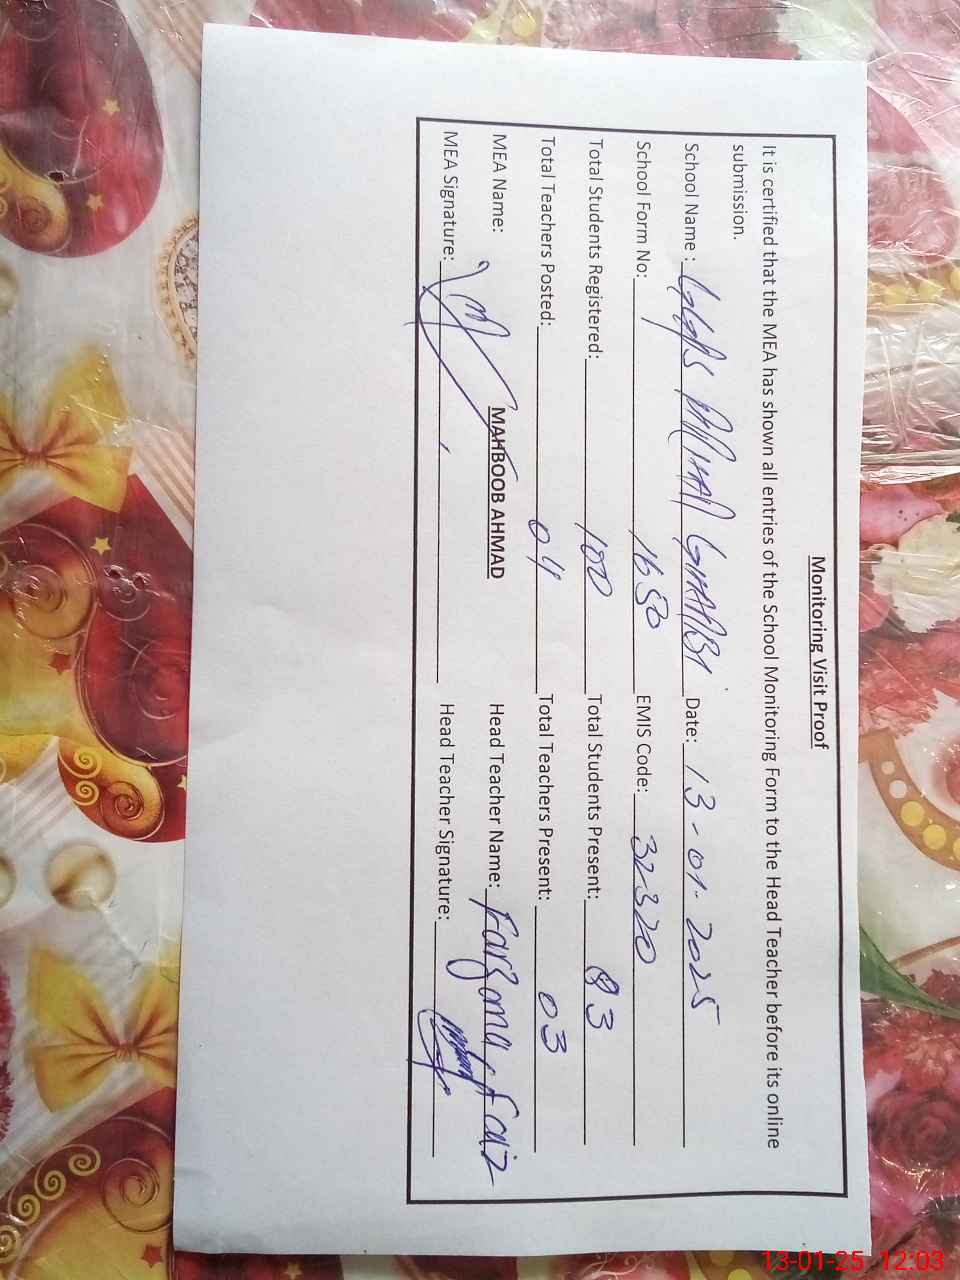 Monitoring Visit Proof
It is certified that the MEA has shown all entries of the School Monitoring Form to the Head Teacher before its online
submission.
School Name : GGPS GHARBI Date: 13-01-2025
School Form No: 1650 EMIS Code: 32320
Total Students Registered: 100 Total Students Present: 83
Total Teachers Posted: 04 Total Teachers Present: 03
MEA Name: MAHBOOB AHMAD Head Teacher Name: Farzana Faiz
MEA Signature: Head Teacher Signature:
13-01-25 12:03